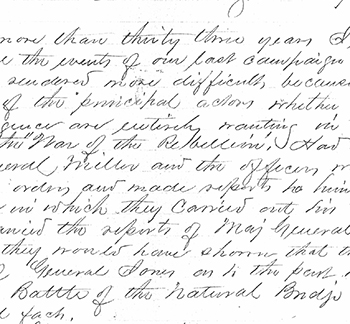 more than thirty three years I
e the events of our last campaign
rendered more difficult, because
of the principal actors whether
gence are entirely wanting in
the "War of the Rebellion". Had
neral Miller and the officers
orders, and made reports to him
in which they carried out his
anied the reports of Maj General
they would have shown that th
General Jones as to the part
Battle of the Natural Bridge
d fact.